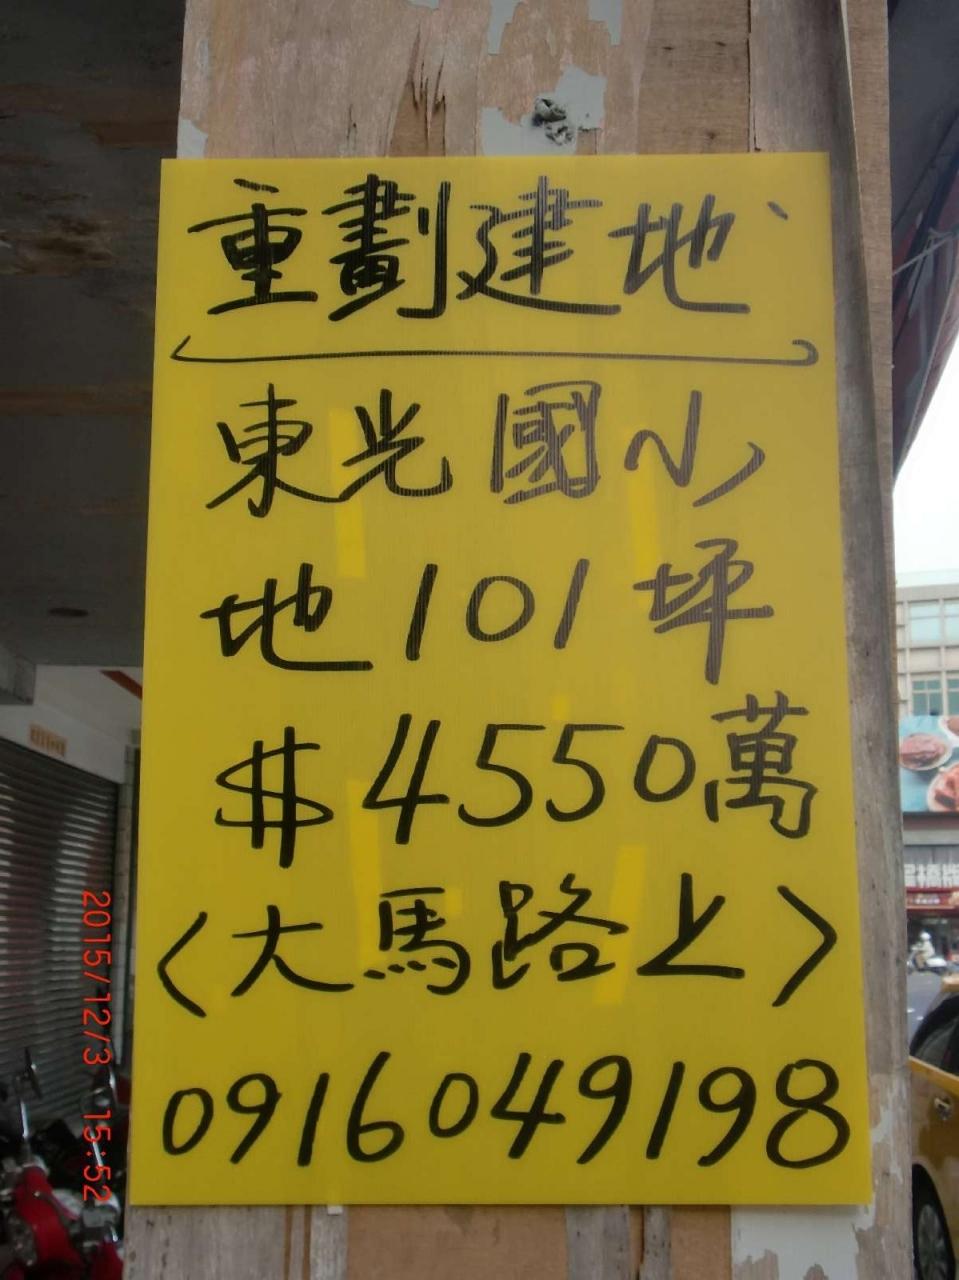 重劃建地
東光國小
地101坪
$4550萬
〈大馬路上〉
0916049198
2015/12/3 15:52